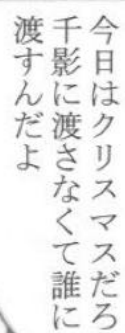 今日はクリスマスだろ
千影に渡さなくて誰に
渡すんだよ